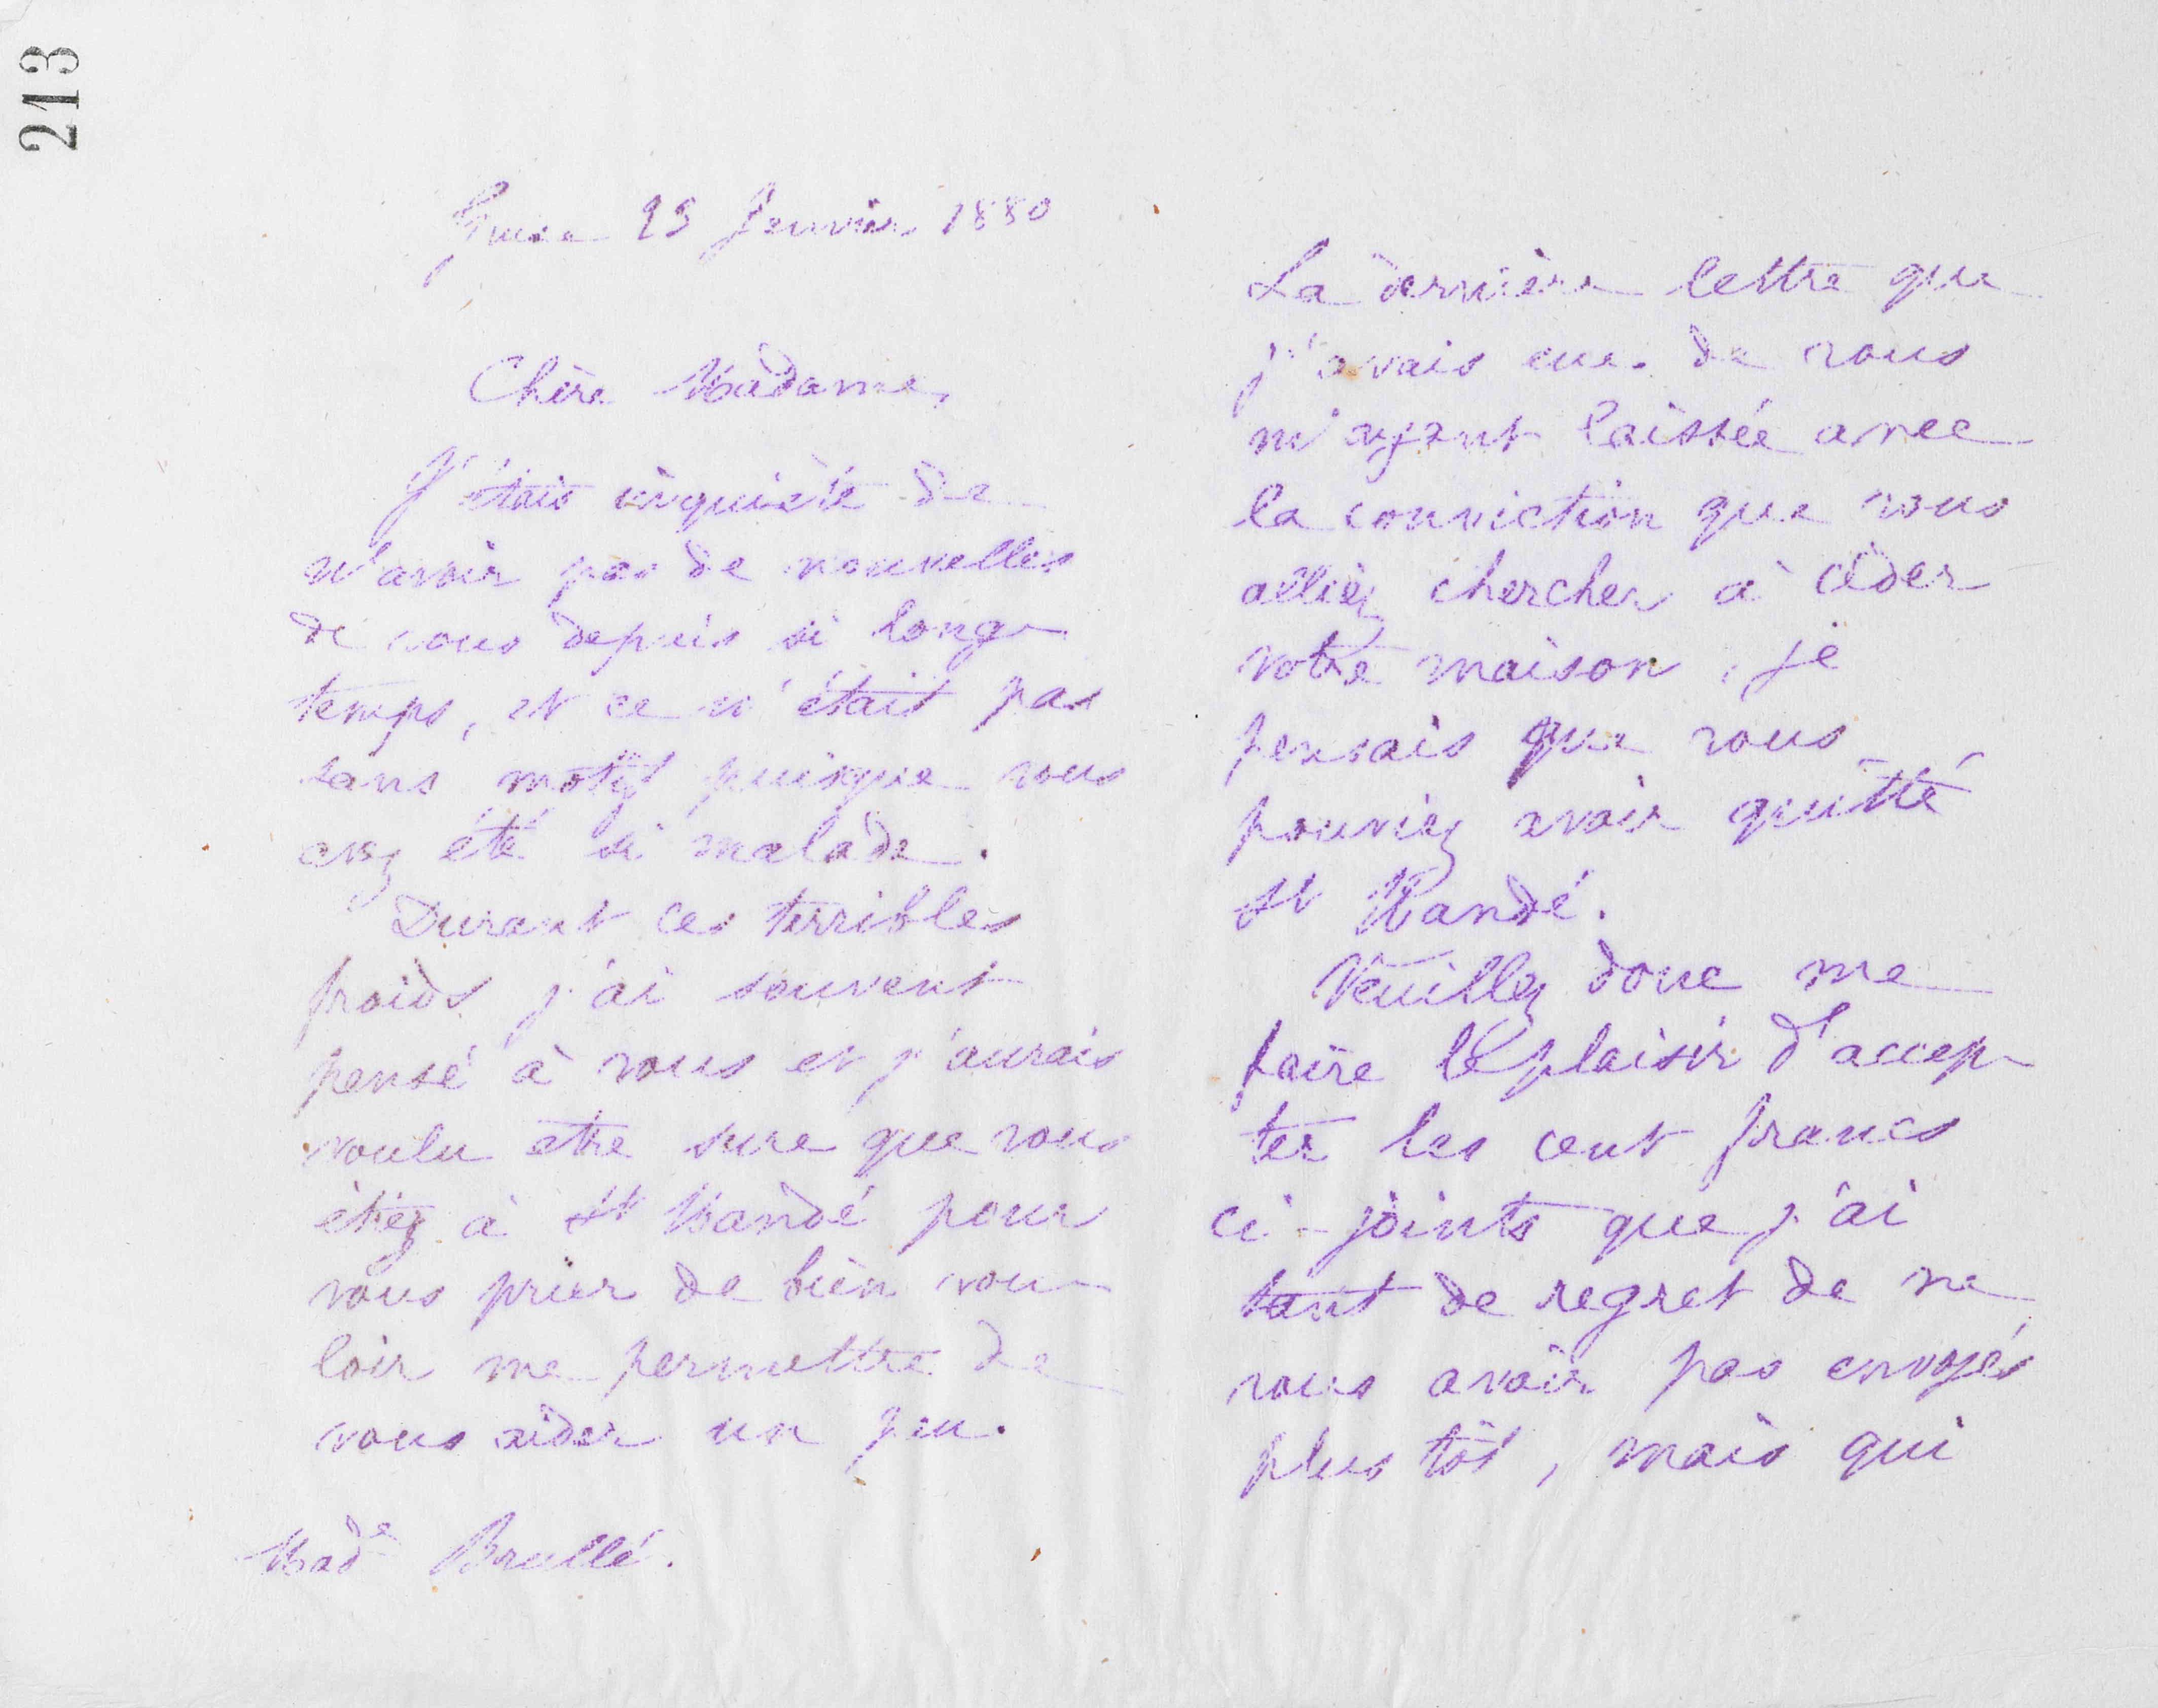 213
Guise 25 Janvier 1880
Chère Madame,
J'étais inquiète de
n'avoir pas de nouvelles
de vous depuis si long
temps, et ce n'était pas
sans motif puisque vous
avez été si malade.
Durant ces terribles
froids j'ai souvent
pensé à vous et j'aurais
voulu etre sure que vous
étiez à St Mandé pour
vous prier de bien vou-
loir me permettre de
vous aider un peu.
Made Brullé.
La dernière lettre que
j'avais eue de vous
m'ayant laissée avec
la conviction que vous
alliez chercher à céder
votre maison, je
pensais que vous
pouviez avoir quitté
St Mandé.
Veuillez donc me
faire le plaisir d'accep-
ter les cent francs
ci-joints que j'ai
tant de regret de ne
vous avoir pas envoyés
plus tôt, mais qui